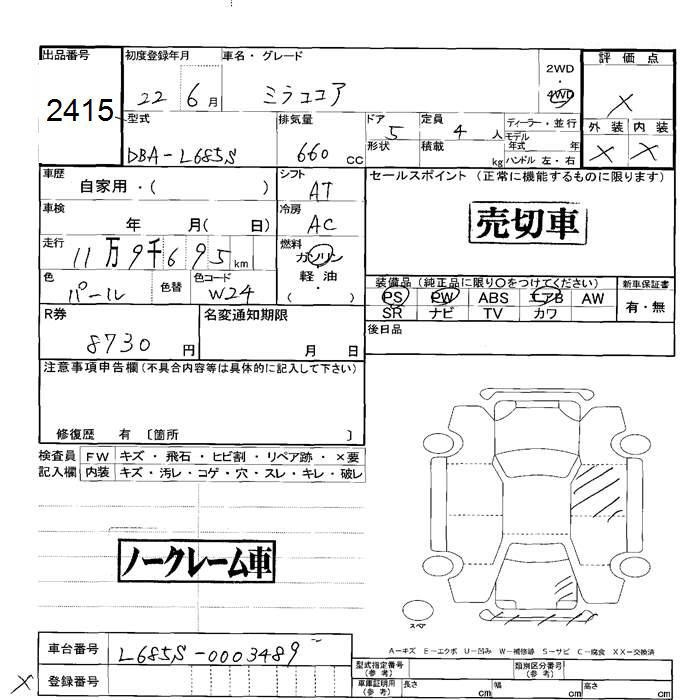 出品番号
2415
初度登録年月
22 6月
車名・グレード
ミラココア
2WD
・
4WD
評価点
X
外装 内装
X X
型式
DBA-L685S
排気量
660 cc
ドア
5
形状
定員
4 人
積載
kg
ディーラー・並行
モデル
年式 年
ハンドル 左・右
車歴
自家用・( )
シフト
AT
車検
年 月( 日)
冷房
AC
走行
11万9千695km
燃料
ガソリン
軽油
・
( )
色
パール
色替
色コード
W24
セールスポイント (正常に機能するものに限ります)
売切車
装備品 (純正品に限り○をつけてください)
PS PW ABS エアB AW
SR ナビ TV カワ
新車保証書
有・無
後日品
R券
8730 円
名変通知期限
月 日
注意事項申告欄 (不具合内容等は具体的に記入して下さい)
修復歴 有 〔箇所 〕
検査員
記入欄
FW キズ・飛石・ヒビ割・リペア跡・×要
内装 キズ・汚レ・コゲ・穴・スレ・キレ・破レ
ノークレーム車
スペア
A=キズ E=エクボ U=凹み W=補修跡 S=サビ C=腐食 XX=交換済
車台番号
L685S-0003489
X
登録番号
型式指定番号
(参考)
類別区分番号
(参考)
車庫証明用
(参考)
長さ cm
幅 cm
高さ cm